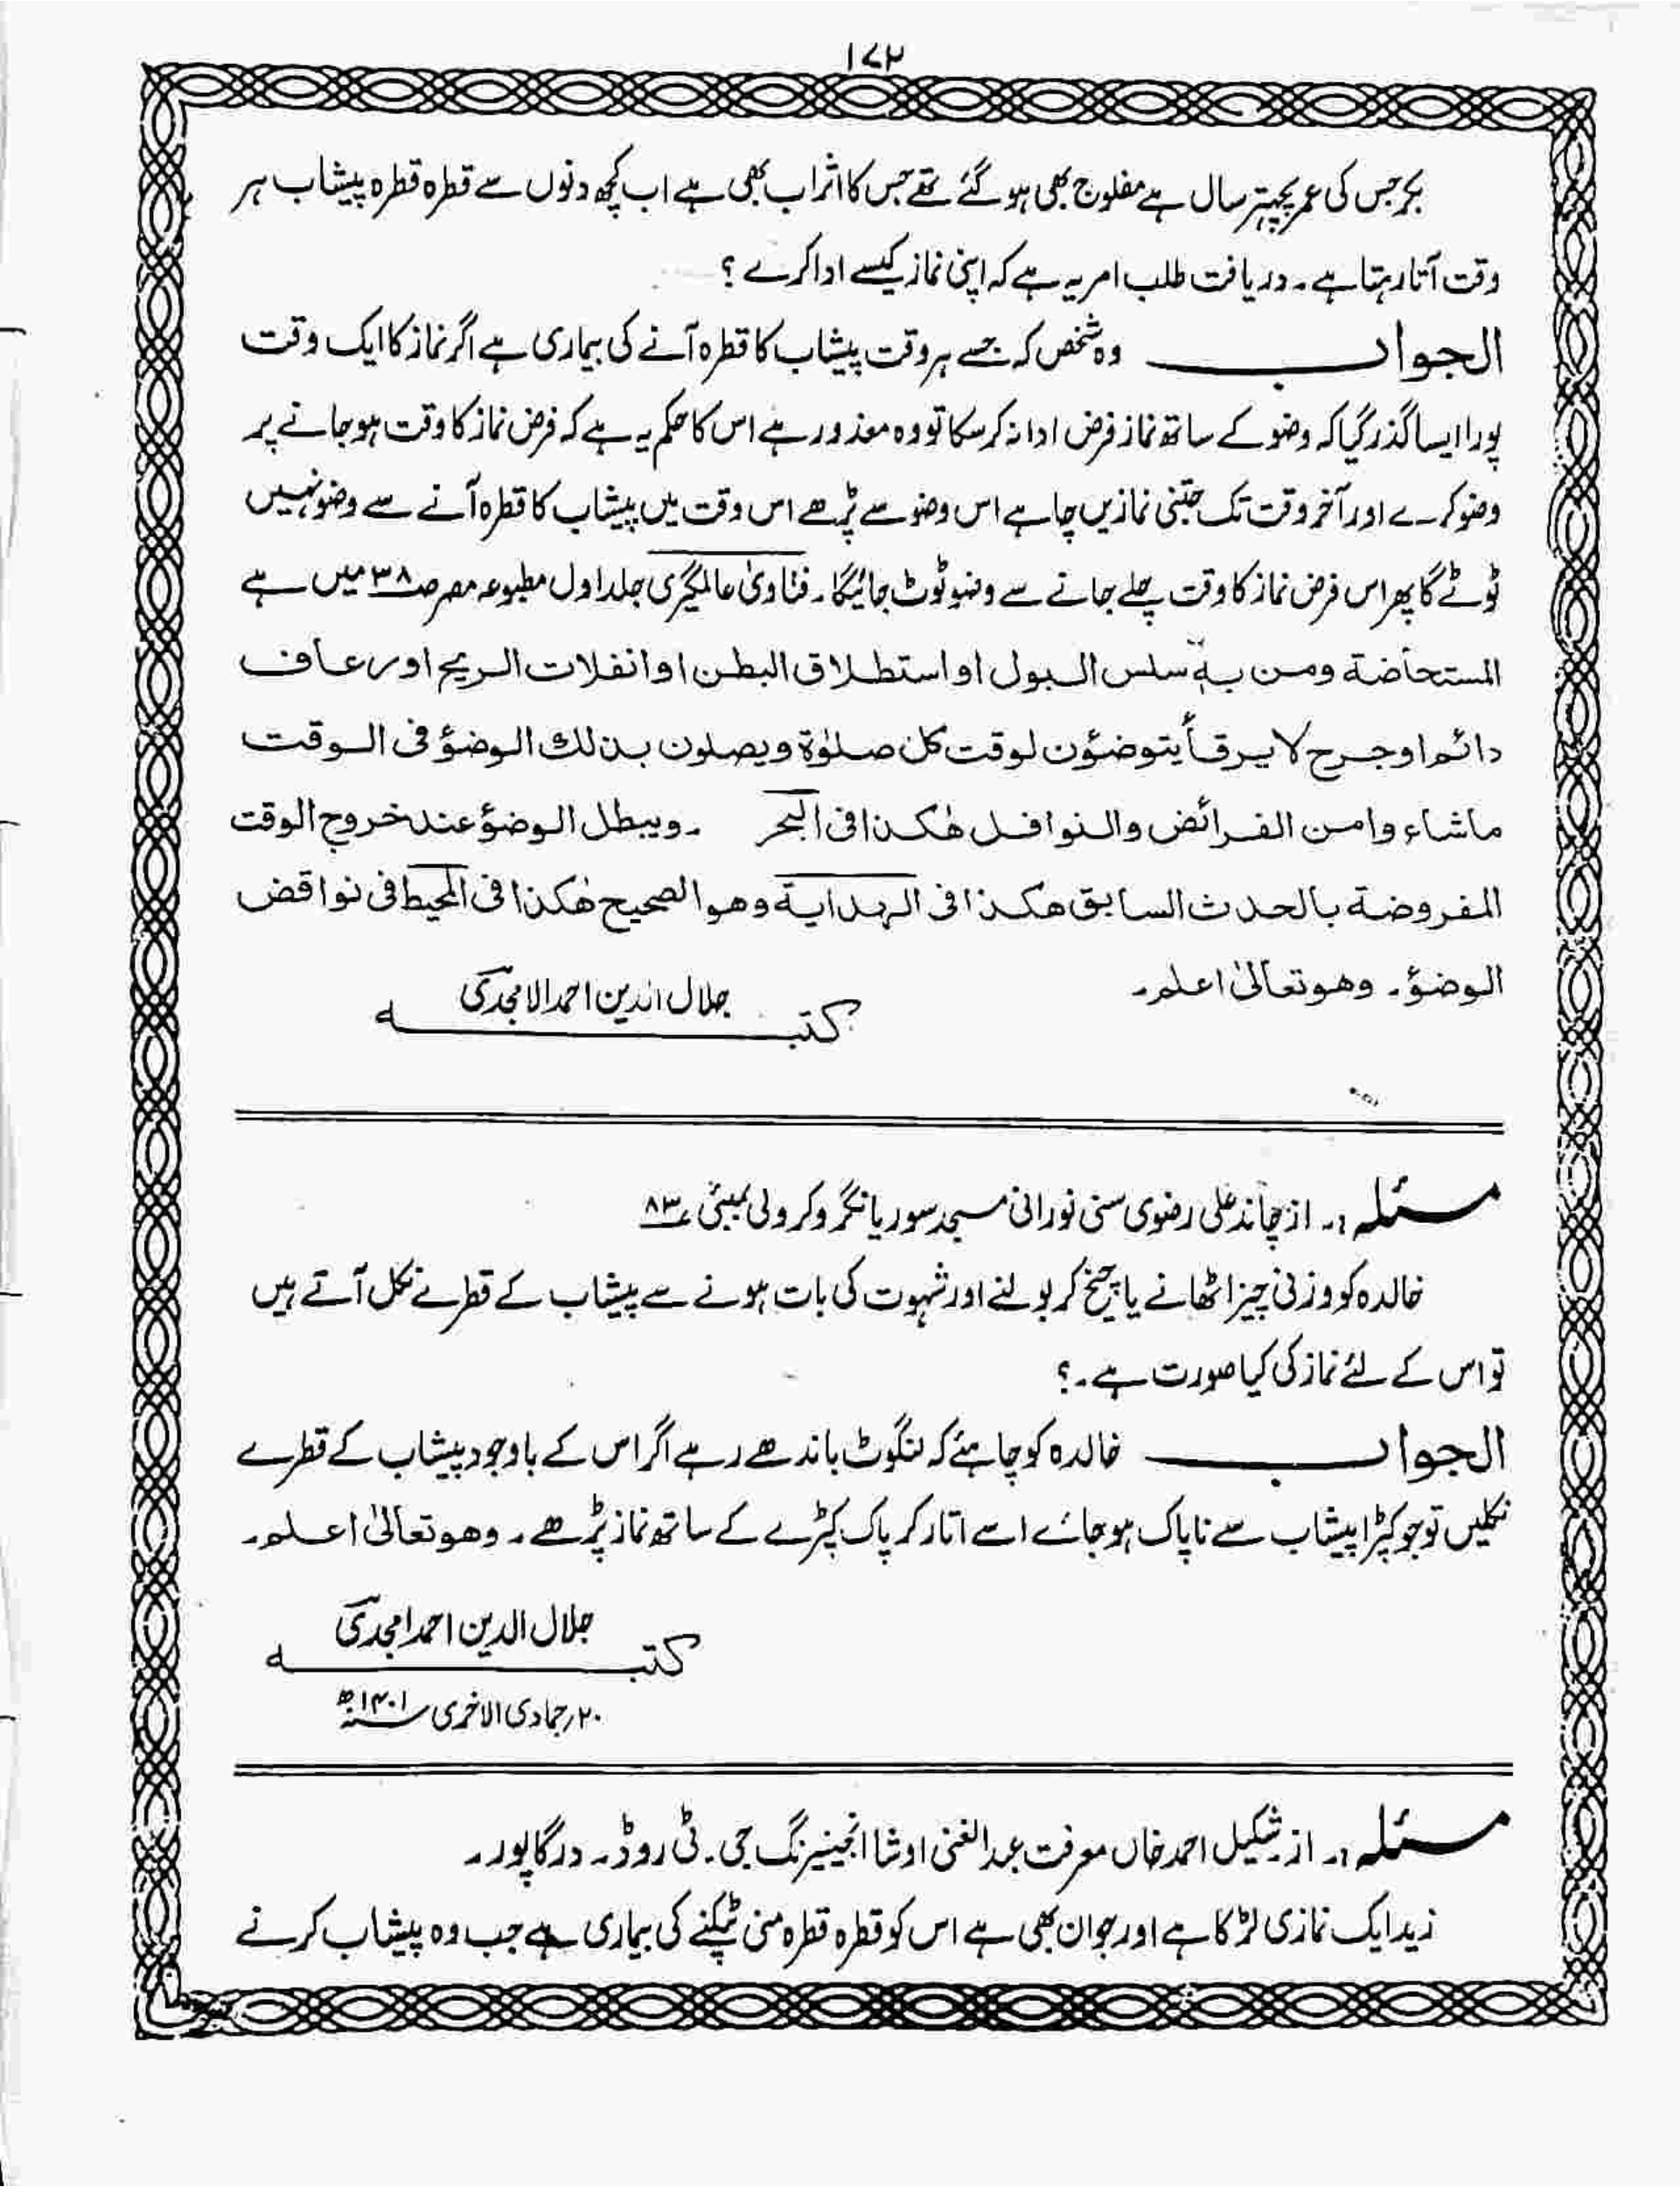 ۱۷۲
بکر جس کی عمر پچہتر سال ہے مفلوج بھی ہو گئے تھے جس کا اثر اب بھی ہے اب کچھ دنوں سے قطرہ قطرہ پیشاب ہر
وقت آتا رہتا ہے۔ دریافت طلب امر یہ ہے کہ اپنی نماز کیسے ادا کرے ؟
الجواب وہ شخص کہ جسے ہر وقت پیشاب کا قطرہ آنے کی بیماری ہے اگر نماز کا ایک وقت
پورا ایسا گذر گیا کہ وضو کے ساتھ نماز فرض ادا نہ کرسکا تو وہ معذور ہے اس کا حکم یہ ہے کہ فرض نماز کا وقت ہوجانے پر
وضو کرے اور آخر وقت تک جتنی نمازیں چاہے اس وضو سے پڑھے اس وقت میں پیشاب کا قطرہ آنے سے وضو نہیں
ٹوٹے گا پھر اس فرض نماز کا وقت چلے جانے سے وضو ٹوٹ جائیگا۔ فتاویٰ عالمگیری جلد اول مطبوعہ مصر صـ۳۸ میں ہے
المستحاضة ومن بہ سلس البول او استطلاق البطن او انفلات الریح او رعاف
دائم او جرح لا یرقأ یتوضؤن لوقت کل صلوٰة ویصلون بذلك الوضؤ فی الوقت
ماشاء وا من الفرائض والنوافل ھٰکذا فی البحر ۔ ویبطل الوضؤ عند خروج الوقت
المفروضة بالحدث السابق ھکذا فی الہدایة وھو الصحیح ھٰکذا فی المحیط فی نواقض
الوضؤ۔ وھو تعالیٰ اعلم۔
جلال الدین احمد الامجدی
کتبہ
مسئلہ :۔ از چاند علی رضوی سنی نورانی مسجد سوریا نگر وکرولی بمبئی ۸۳
خالدہ کو وزنی چیز اٹھانے یا چیخ کر بولنے اور شہوت کی بات ہونے سے پیشاب کے قطرے نکل آتے ہیں
تو اس کے لئے نماز کی کیا صورت ہے۔؟
الجواب خالدہ کو چاہئے کہ لنگوٹ باندھے رہے اگر اس کے باوجود پیشاب کے قطرے
نکلیں تو جو کپڑا پیشاب سے ناپاک ہوجائے اسے اتار کر پاک کپڑے کے ساتھ نماز پڑھے۔ وھو تعالیٰ اعلم۔
جلال الدین احمد امجدی
کتبہ
۲۰؍ جمادی الاخری ۱۴۰۱ھ
مسئلہ :۔ از شکیل احمد خاں معرفت عبدالغنی اوشا انجینیرنگ جی۔ ٹی روڈ۔ درگاپور۔
زید ایک نمازی لڑکا ہے اور جوان بھی ہے اس کو قطرہ قطرہ منی ٹپکنے کی بیماری ہے جب وہ پیشاب کرنے